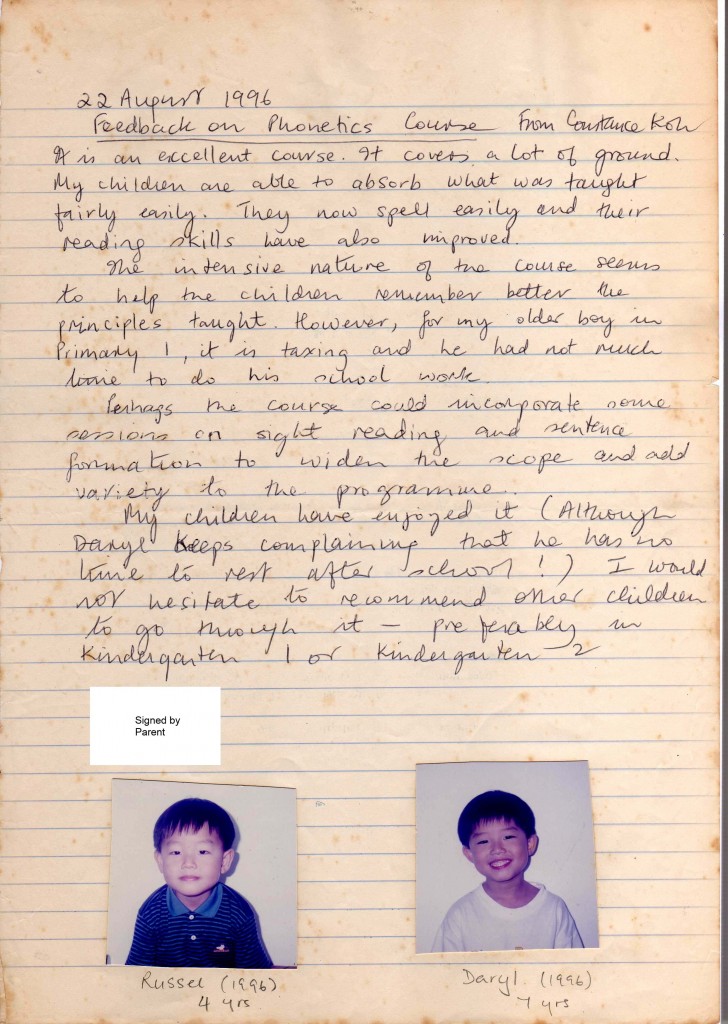 22 August 1996
Feedback on Phonetics Course From Constance Koh
It is an excellent course. It covers a lot of ground.
My children are able to absorb what was taught
fairly easily. They now spell easily and their
reading skills have also improved.
The intensive nature of the course seems
to help the children remember better the
principles taught. However, for my older boy in
Primary 1, it is taxing and he had not much
time to do his school work.
Perhaps the course could incorporate some
sessions on sight reading and sentence
formation to widen the scope and add
variety to the programme.
My children have enjoyed it (Although
Daryl keeps complaining that he has no
time to rest after school!) I would
not hesitate to recommend other children
to go through it – preferably in
Kindergarten 1 or Kindergarten 2
Signed by
Parent
Russel (1996)
4 yrs
Daryl (1996)
7 yrs